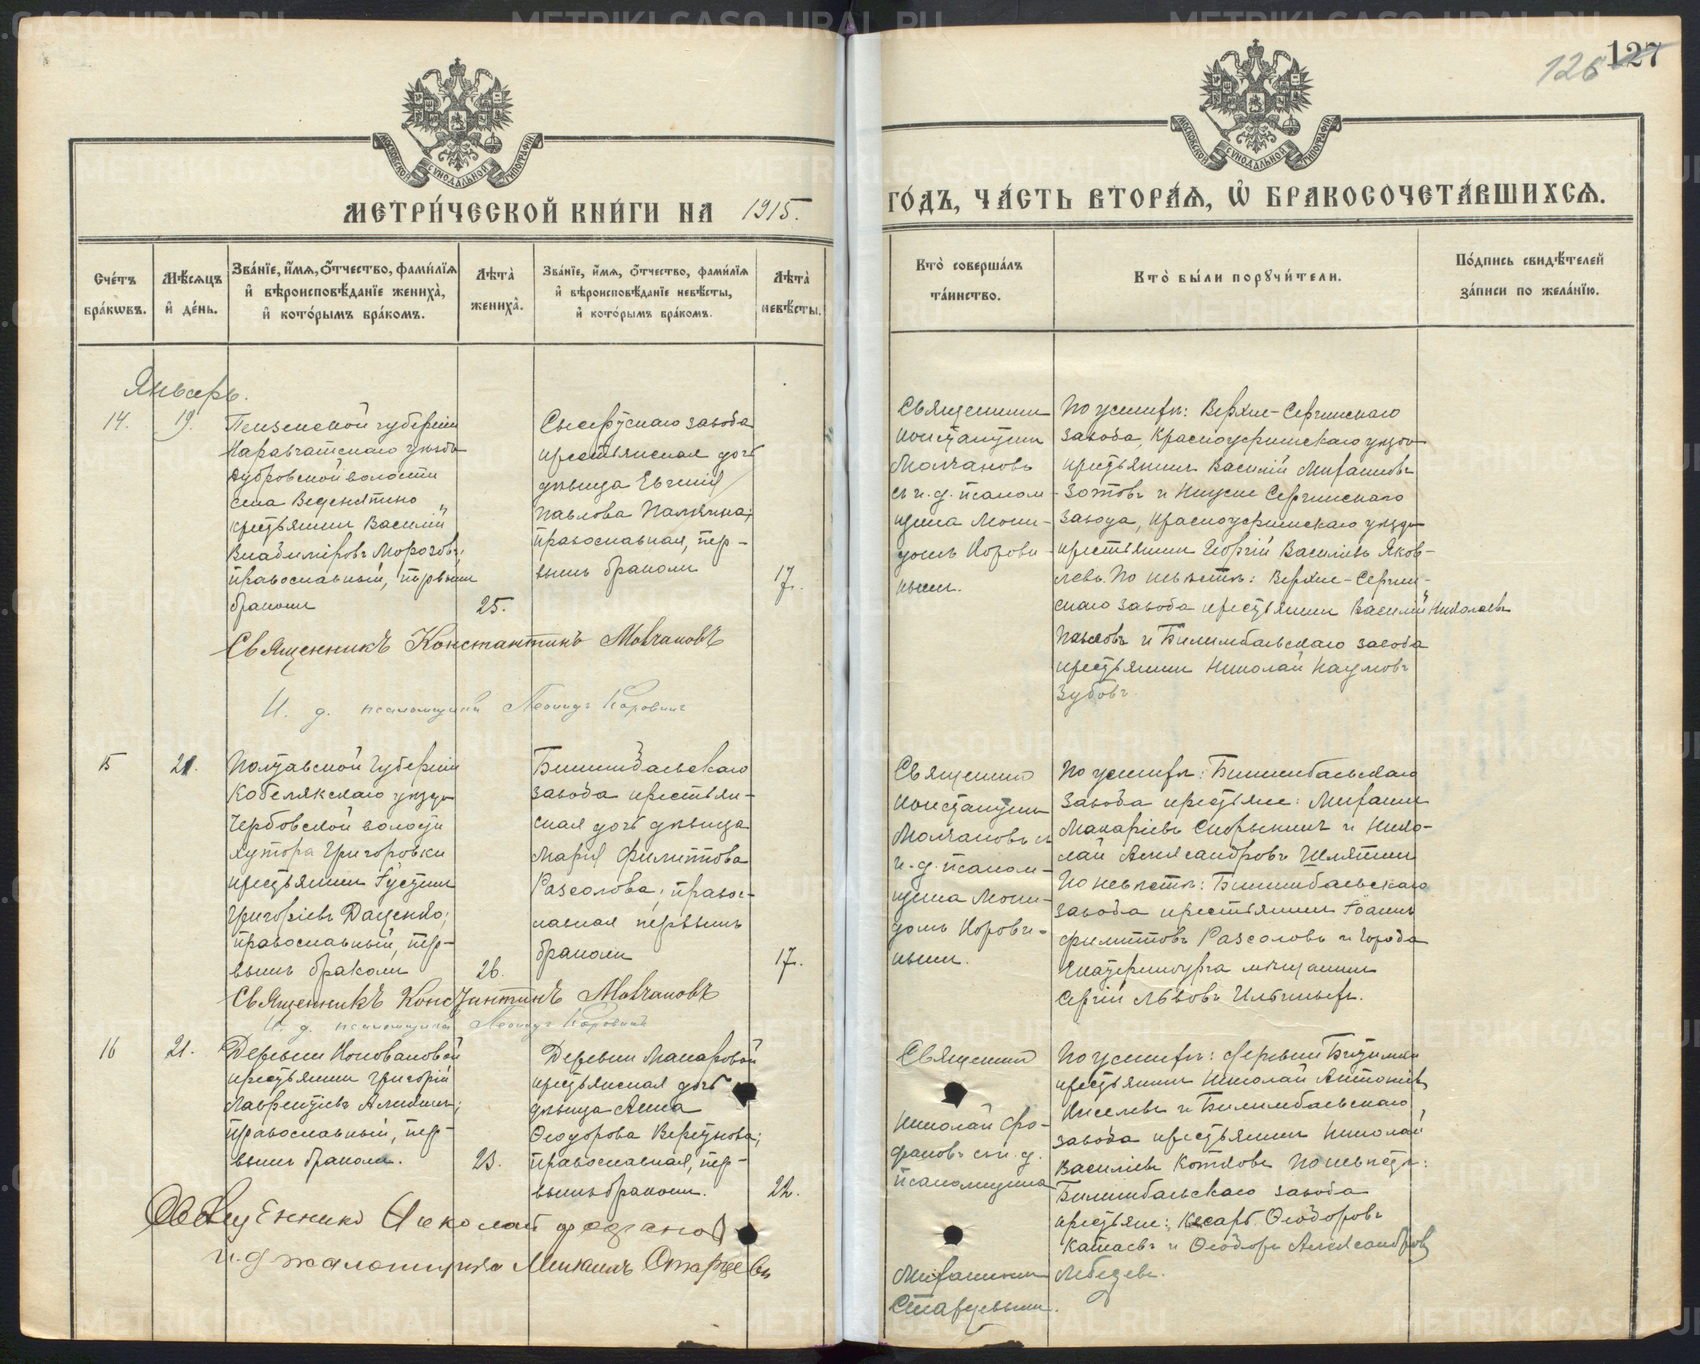 METRIKI.GASO-URAL.RU
127
126
МОСКОВСКОЙ СѴНОДАЛЬНОЙ ТИПОГРАФІИ
МОСКОВСКОЙ СѴНОДАЛЬНОЙ ТИПОГРАФІИ
МЕТРИ́ЧЕСКОЙ КНИ́ГИ НА 1915.
ГО́ДЪ, ЧА́СТЬ ВТОРА́Ѧ, Ѡ҆ БРАКОСОЧЕТА́ВШИХСѦ.
Сче́тъ бра́кѡвъ.
Мѣ́сяцъ и҆ де́нь.
Зва́нїе, и҆́мѧ, ѻ҆́тчество, фами́лїѧ и҆ вѣроисповѣ́данїе жениха̀, и҆ кото́рымъ бра́комъ.
Лѣ́та жениха̀.
Зва́нїе, и҆́мѧ, ѻ҆́тчество, фами́лїѧ и҆ вѣроисповѣ́данїе невѣ́сты, и҆ кото́рымъ бра́комъ.
Лѣ́та невѣ́сты.
Кто̀ соверша́лъ та́инство.
Кто̀ бы́ли порꙋчи́тели.
По́дпись свидѣ́телей за́писи по жела́нїю.
Январь.
14.
19.
Пензенской губерніи
Наровчатскаго уѣзда
Дубровской волости
села Веденяпино
крестьянинъ Василій
Владиміровъ Морозовъ,
православный, первымъ
бракомъ
25.
Сысертскаго завода
крестьянская дочь
дѣвица Евгенія
Павлова
православная, пер-
вымъ бракомъ
17.
Священникъ
Константинъ
Молчановъ
съ и. д. псалом-
щика Леони-
домъ Корови-
нымъ.
По женихѣ: Верхне-Сергинскаго
завода, Красноуфимскаго уѣзда
крестьянинъ Василій
Зотовъ и Нижне Сергинскаго
завода, Красноуфимскаго уѣзда
крестьянинъ Георгій Васильевъ Яков-
левъ. По невѣстѣ: Верхне-Сергин-
скаго завода крестьянинъ Василій Николаевъ
и Билимбаевскаго завода
крестьянинъ Николай Наумовъ
Зубовъ.
Священникъ Константинъ Молчановъ
И. д. псаломщика Леонидъ Коровинъ
15
21.
Полтавской губерніи
Кобелякскаго уѣзда
волости
хутора Григоровки
крестьянинъ Іустинъ
Григорьевъ Даценко;
православный, пер-
вымъ бракомъ
26.
Билимбаевскаго
завода крестьян-
ская дочь дѣвица
Марія Филиппова
Разсолова, право-
славная первымъ
бракомъ
17.
Священникъ
Константинъ
Молчановъ съ
и. д. псалом-
щика Леони-
домъ Корови-
нымъ.
По женихѣ: Билимбаевскаго
завода крестьяне: Михаилъ
Макаріевъ и Нико-
лай Александровъ
По невѣстѣ: Билимбаевскаго
завода крестьянинъ Іоаннъ
Филипповъ Разсоловъ и города
Екатеринбурга мѣщанинъ
Сергій Львовъ
Священникъ Константинъ Молчановъ
И. д. псаломщика Леонидъ Коровинъ
16
21.
Деревни Коноваловой
крестьянинъ Григорій
Лаврентьевъ
православный, пер-
вымъ бракомъ.
23.
Деревни Макаровой
крестьянская дочь
дѣвица Анна
Ѳеодорова
православная, пер-
вымъ бракомъ.
22.
Священникъ
Николай Фо-
фановъ съ и. д.
псаломщика
Михаиломъ
Старцевымъ.
По женихѣ: деревни
крестьянинъ Николай Антоніевъ
Киселевъ и Билимбаевскаго
завода крестьянинъ Николай
Василіевъ По невѣстѣ:
Билимбаевскаго завода
крестьяне: Ѳеодоровъ
и Ѳеодоръ Александровъ
Лебедевъ.
Священникъ Николай Фофановъ
и. д. псаломщика Михаилъ Старцевъ